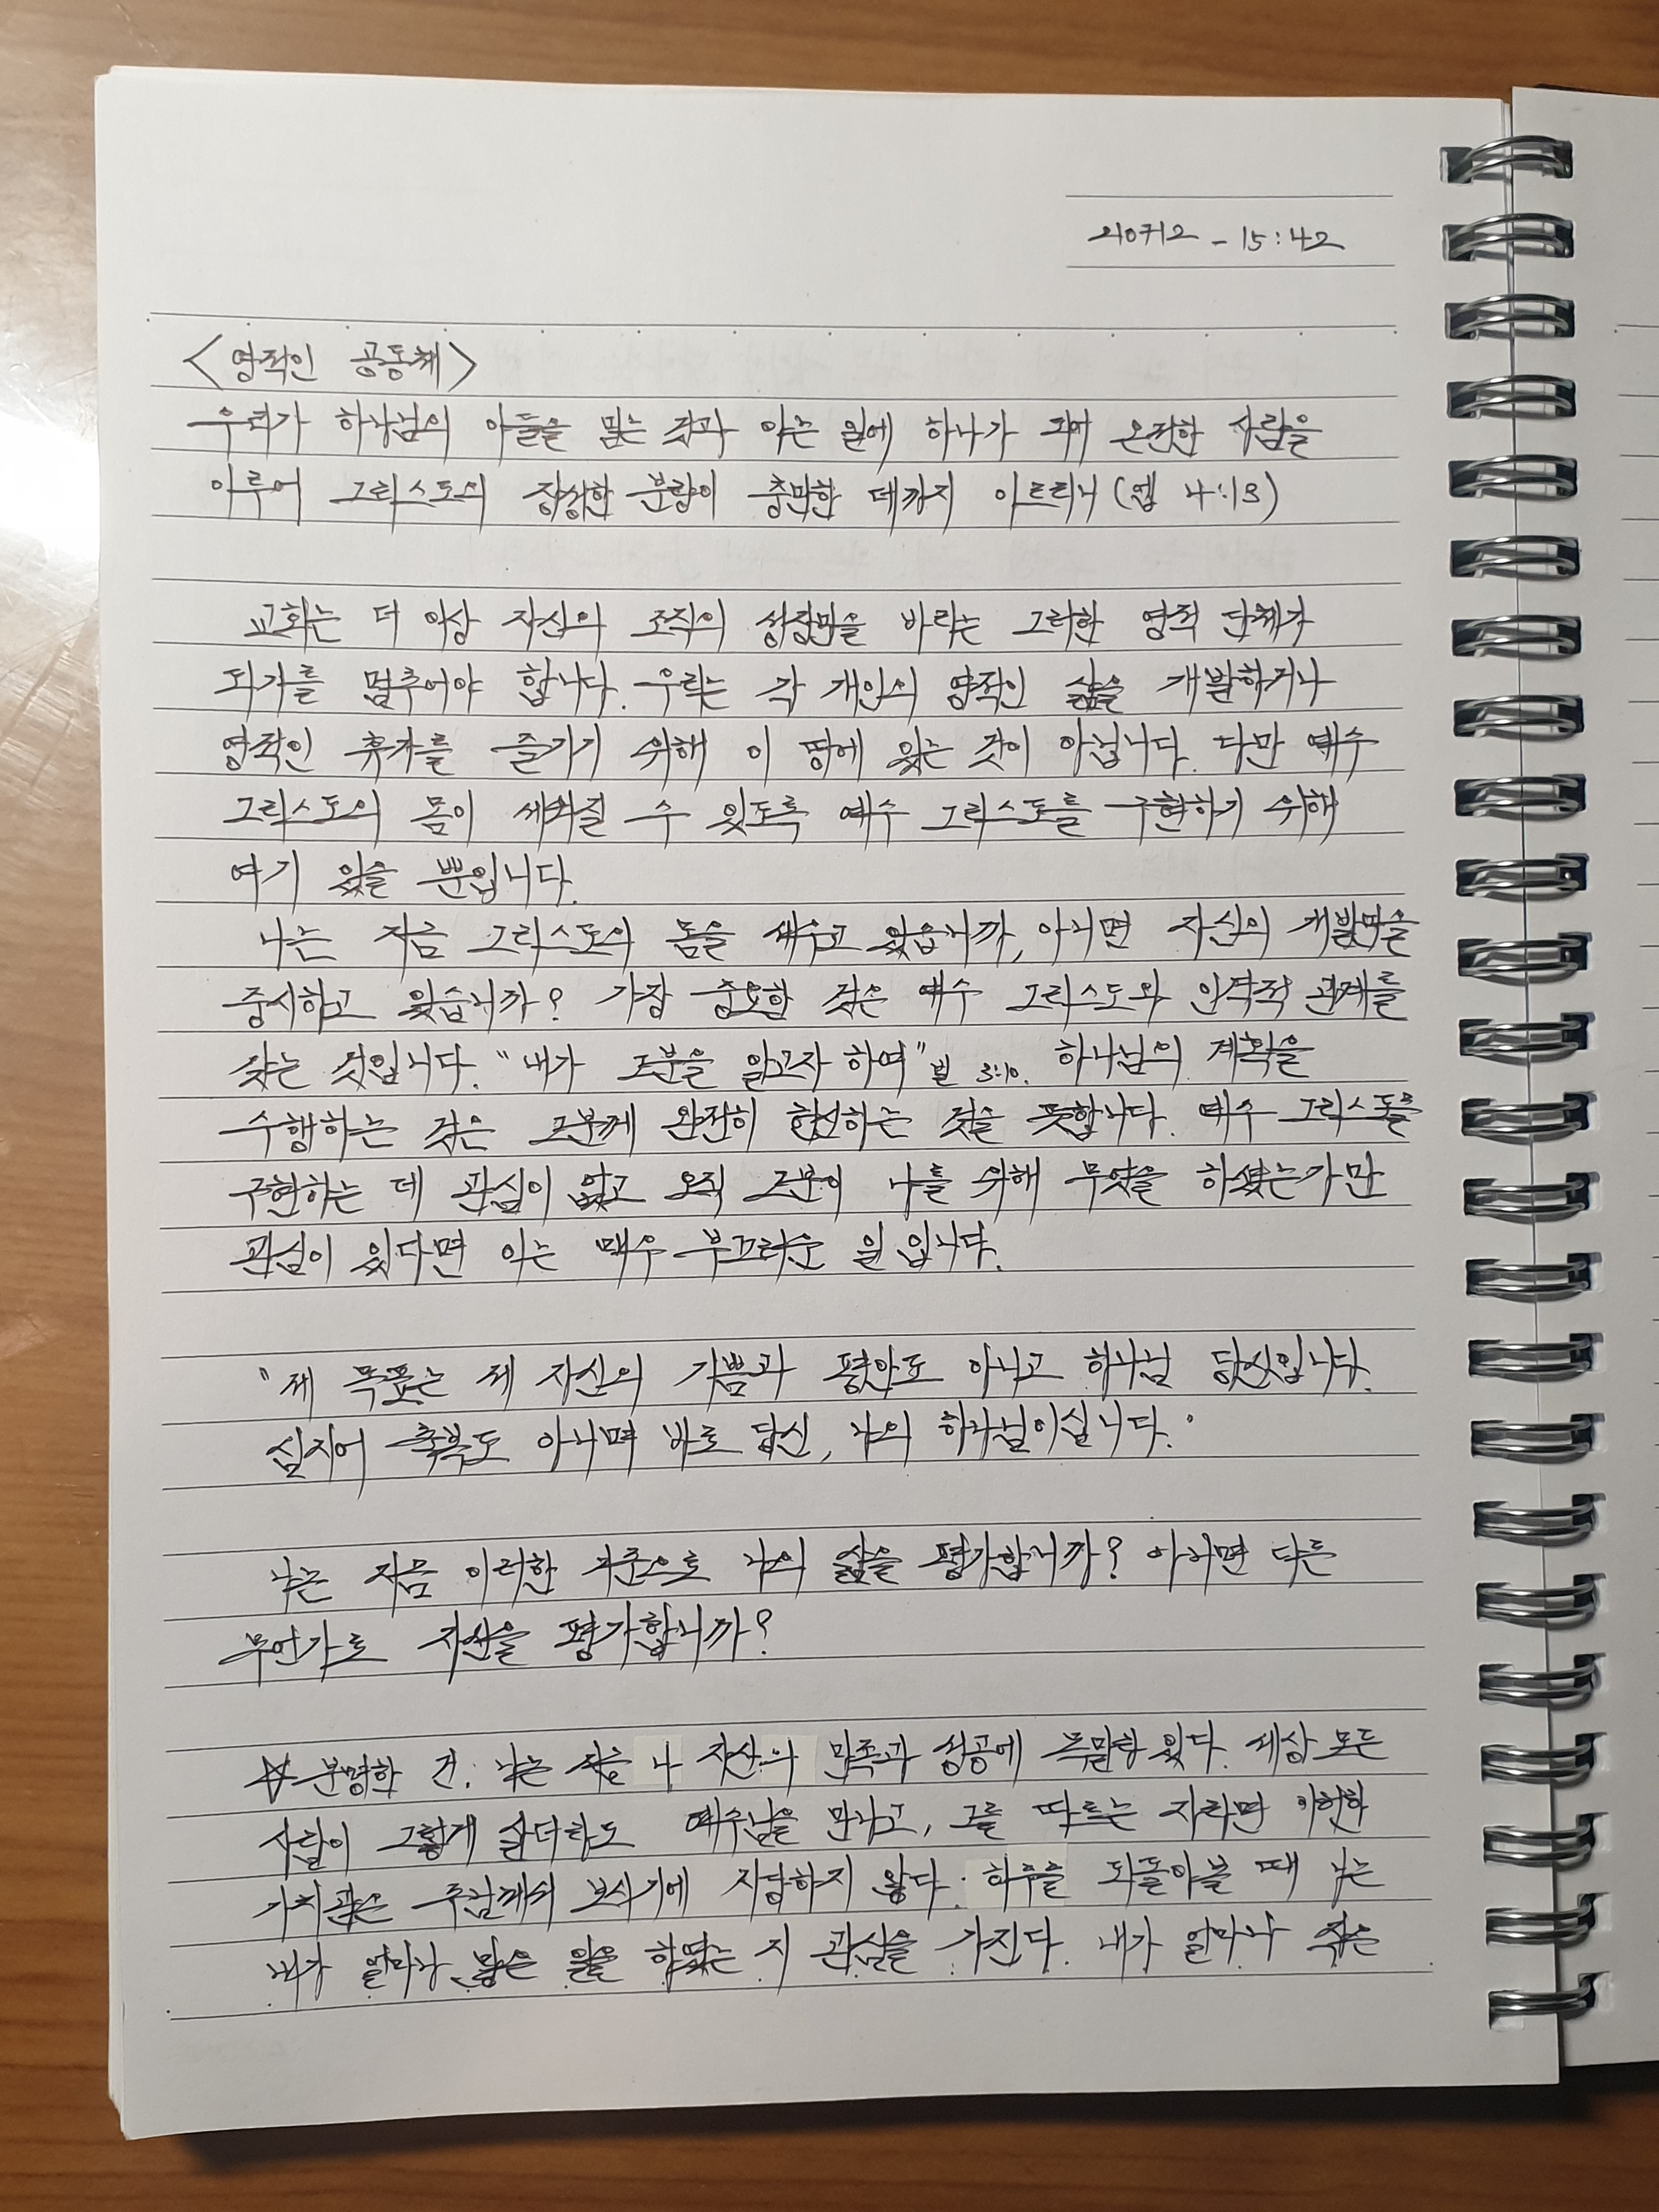 210712 - 15:42
<영적인 공동체>
우리가 하나님의 아들을 믿는 것과 아는 일에 하나가 되어 온전한 사람을
이루어 그리스도의 장성한 분량이 충만한 데까지 이르리니 (엡 4:13)
교회는 더 이상 자신의 조직의 성장만을 바라는 그러한 영적 단체가
되기를 멈추어야 합니다. 우리는 각 개인의 영적인 삶을 개발하거나
영적인 휴가를 즐기기 위해 이 땅에 있는 것이 아닙니다. 다만 예수
그리스도의 몸이 세워질 수 있도록 예수 그리스도를 구현하기 위해
여기 있을 뿐입니다.
나는 지금 그리스도의 몸을 세우고 있습니까, 아니면 자신의 개발만을
중시하고 있습니까? 가장 중요한 것은 예수 그리스도와 인격적 관계를
갖는 것입니다. "내가 그분을 알고자 하여" 빌 3:10. 하나님의 계획을
수행하는 것은 그분께 완전히 헌신하는 것을 뜻합니다. 예수 그리스도를
구현하는 데 관심이 없고 오직 그분이 나를 위해 무엇을 하셨는가만
관심이 있다면 이는 매우 부끄러운 일입니다.
"제 목표는 제 자신의 기쁨과 평안도 아니고 하나님 당신입니다.
심지어 축복도 아니며 바로 당신, 나의 하나님이십니다."
나는 지금 이러한 기준으로 나의 삶을 평가합니까? 아니면 다른
무언가로 자신을 평가합니까?
☆ 분명한 건, 나는 지금 나 자신의 만족과 성공에 목말라 있다. 세상 모든
사람이 그렇게 살더라도 예수님을 만나고, 그를 따르는 자라면 이러한
가치관은 주님께서 보시기에 지당하지 않다. 하루를 되돌아볼 때 나는
내가 얼마나 많은 일을 하였는 지 관심을 가진다. 내가 얼마나 죽은